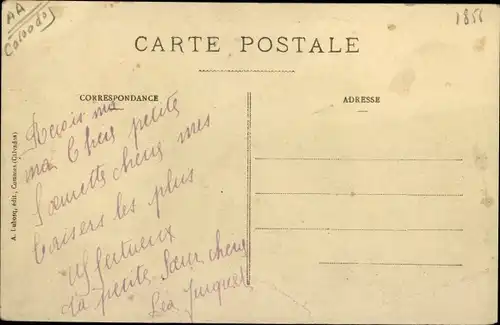 AA
Calvados
1856
CARTE POSTALE
CORRESPONDANCE
ADRESSE
Reçois ma
ma Cher petite
Sœurette cheri mes
baisers les plus
affectueux
ta petite Sœur cheri
Léa
A. Dubosq, édit., Commes (Calvados)